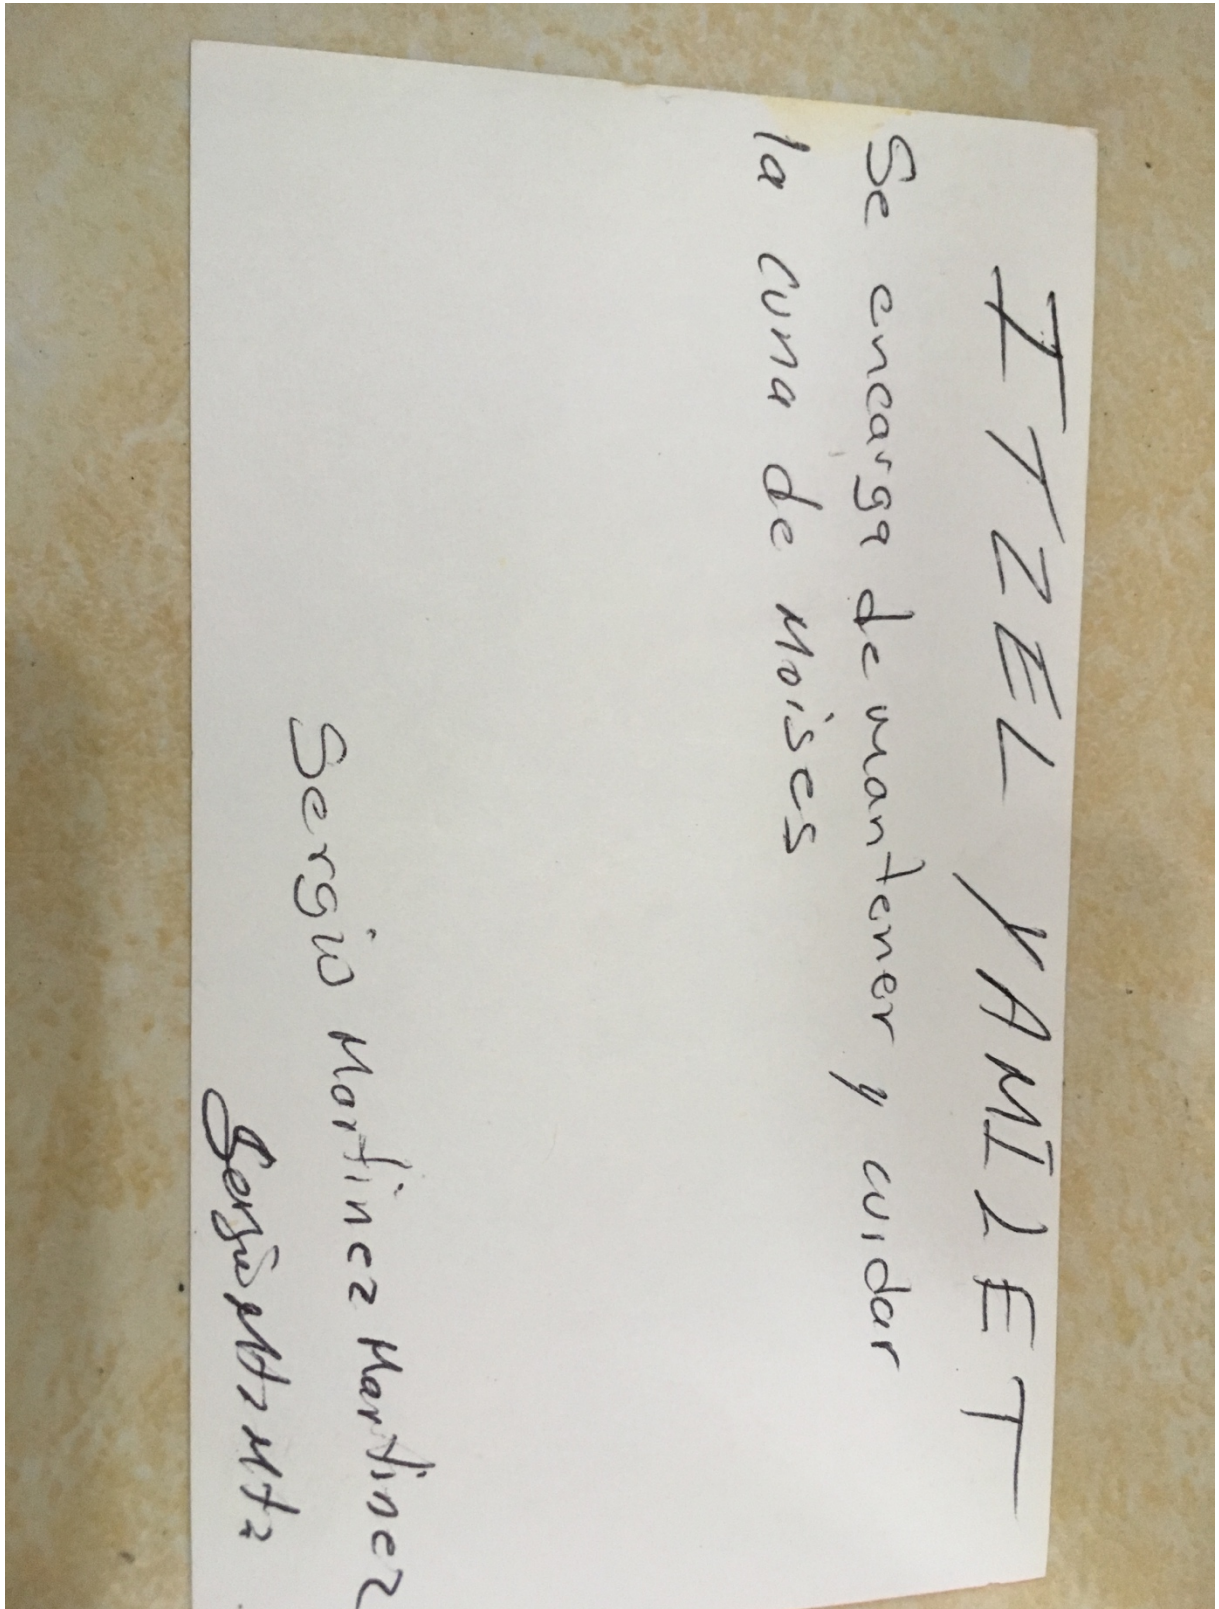 ITZEL YAMILET
Se encarga de mantener y cuidar
la cuna de Moises
Sergio Martinez Martinez
Sergio Mtz Mtz